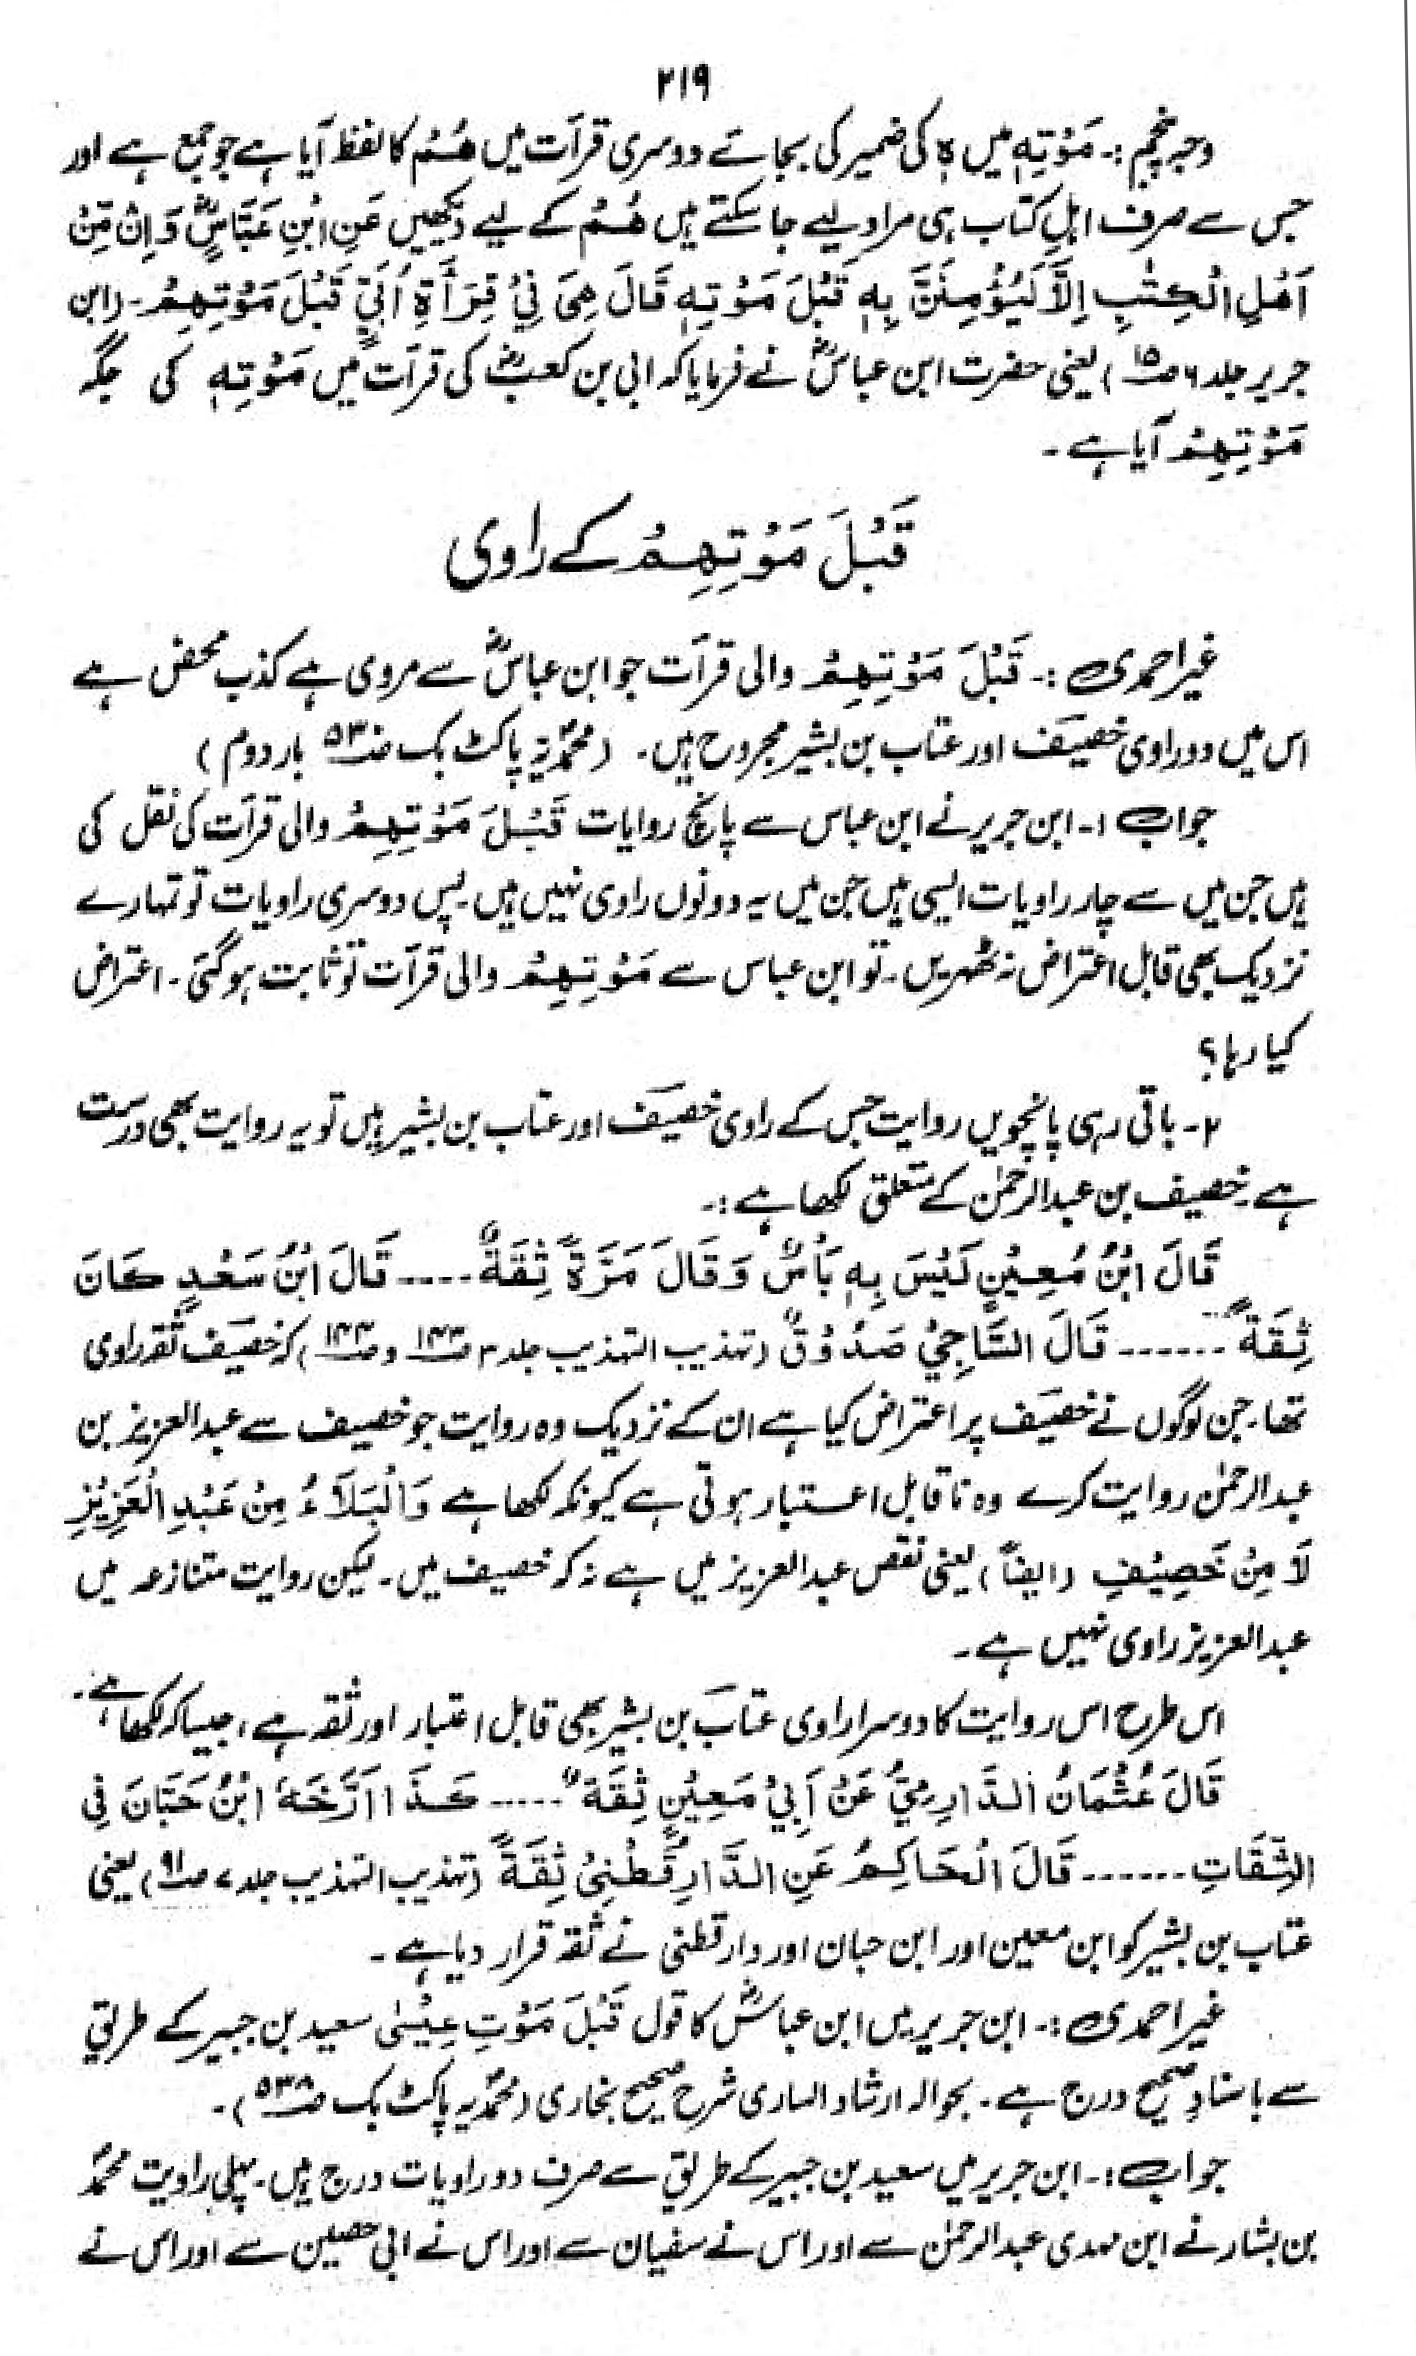 ۲۱۹
وجہ پنجم :۔ مَوْتِہٖ میں ہٖ کی ضمیر کی بجائے دوسری قرآت میں ھُمْ کا لفظ آیا ہے جو جمع ہے اور
جس سے صرف اہلِ کتاب ہی مراد لیے جا سکتے ہیں ھُمْ کے لیے دیکھیں عَنِ ابْنِ عَبَّاسٍؓ وَ اِنْ مِّنْ
اَھْلِ الْکِتٰبِ اِلَّا لَیُؤْمِنَنَّ بِہٖ قَبْلَ مَوْتِہٖ قَالَ ھِیَ فِیْ قِرَأَۃِ اُبَیٍّ قَبْلَ مَوْتِھِمْ۔ (ابن
جریر جلد ۶ صـ۱۵) یعنی حضرت ابن عباسؓ نے فرمایا کہ ابی بن کعبؓ کی قرآت میں مَوْتِہٖ کی جگہ
مَوْتِھِمْ آیا ہے ۔
قَبْلَ مَوْتِھِمْ کے راوی
غیر احمدی :۔ قَبْلَ مَوْتِھِمْ والی قرآت جو ابن عباسؓ سے مروی ہے کذب محض ہے
اس میں دو راوی خصیَف اور عتاب بن بشیر مجروح ہیں۔ (محمدؐیہ پاکٹ بک صـ۵۳ بار دوم )
جواب ۱۔ ابن جریر نے ابن عباس سے پانچ روایات قَبْلَ مَوْتِھِمْ والی قرآت کی نقل کی
ہیں جن میں سے چار راویات ایسی ہیں جن میں یہ دونوں راوی نہیں ہیں۔ پس دوسری راویات تو تمہارے
نزدیک بھی قابل اعتراض نہ ٹھہریں۔ تو ابن عباس سے مَوْتِھِمْ والی قرآت تو ثابت ہوگئی۔ اعتراض
کیا رہا ؟
۲۔ باقی رہی پانچویں روایت جس کے راوی خصیَف اور عتاب بن بشیر ہیں تو یہ روایت بھی درست
ہے۔ خصیف بن عبدالرحمٰن کے متعلق لکھا ہے :۔
قَالَ ابْنُ مُعِیْنٍ لَیْسَ بِہٖ بَأْسٌ وَ قَالَ مَرَّۃً ثِقَۃٌ ۔۔۔۔ قَالَ ابْنُ سَعْدٍ کَانَ
ثِقَۃً ۔۔۔۔۔۔ قَالَ السَّاجِیُّ صَدُوْقٌ (تہذیب التہذیب جلد ۳ صـ۱۴۳ و صـ۱۴۴) کہ خصیَف ثقہ راوی
تھا۔ جن لوگوں نے خصیَف پر اعتراض کیا ہے ان کے نزدیک وہ روایت جو خصیف سے عبدالعزیز بن
عبدالرحمٰن روایت کرے وہ نا قابل اعتبار ہوتی ہے کیونکہ لکھا ہے وَ الْبَلَآءُ مِنْ عَبْدِ الْعَزِیْزِ
لَا مِنْ خَصِیْفٍ (ایضاً) یعنی نقص عبدالعزیز میں ہے نہ کہ خصیف میں۔ لیکن روایت متنازعہ میں
عبدالعزیز راوی نہیں ہے ۔
اس طرح اس روایت کا دوسرا راوی عتابَ بن بشیر بھی قابل اعتبار اور ثقہ ہے، جیسا کہ لکھا ہے۔
قَالَ عُثْمَانُ الدَّارِمِیُّ عَنْ اَبِیْ مَعِیْنٍ ثِقَۃٌ ۔۔۔۔۔ کَذَا اَرَّخَہٗ ابْنُ حَبَّانَ فِی
الثِّقَاتِ ۔۔۔۔۔۔ قَالَ الْحَاکِمُ عَنِ الدَّارِقُطْنِیْ ثِقَۃٌ (تہذیب التہذیب جلد ۷ صـ۹۱) یعنی
عتاب بن بشیر کو ابن معین اور ابن حبان اور دار قطنی نے ثقہ قرار دیا ہے ۔
غیر احمدی :۔ ابن جریر میں ابن عباسؓ کا قول قَبْلَ مَوْتِ عِیْسٰی سعید بن جبیر کے طریق
سے باسنادِ صحیح درج ہے۔ بحوالہ ارشاد الساری شرح صحیح بخاری (محمدؐیہ پاکٹ بک صـ۵۳۸)۔
جواب :۔ ابن جریر میں سعید بن جبیر کے طریق سے صرف دو راویات درج ہیں۔ پہلی راویت محمدؐ
بن بشار نے ابن مہدی عبدالرحمٰن سے اور اس نے سفیان سے اور اس نے ابی حصین سے اور اس نے